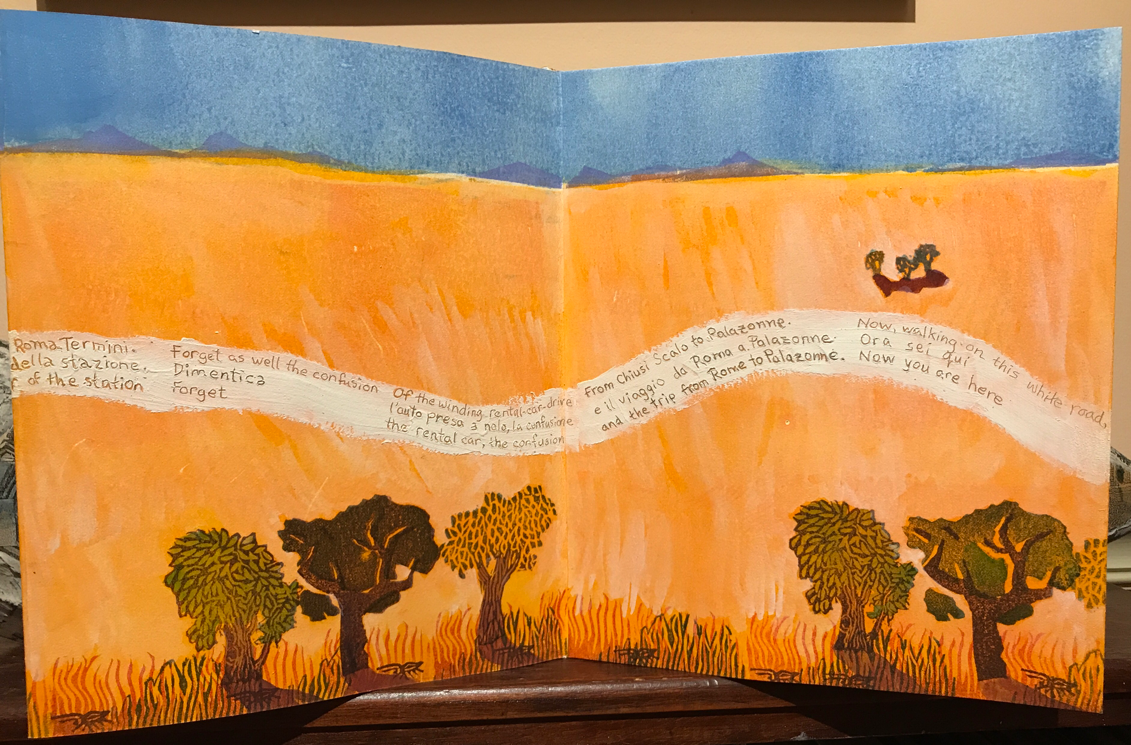 Roma Termini.
della stazione.
of the station
Forget as well the confusion
Dimentica
Forget
Of the winding rental-car-drive
l'auto presa a nolo, la confusione
the rental car, the confusion
From Chiusi Scalo to Palazonne.
e il viaggio da Roma a Palazonne
and the trip from Rome to Palazonne.
Now, walking on this white road,
Ora sei qui
Now you are here